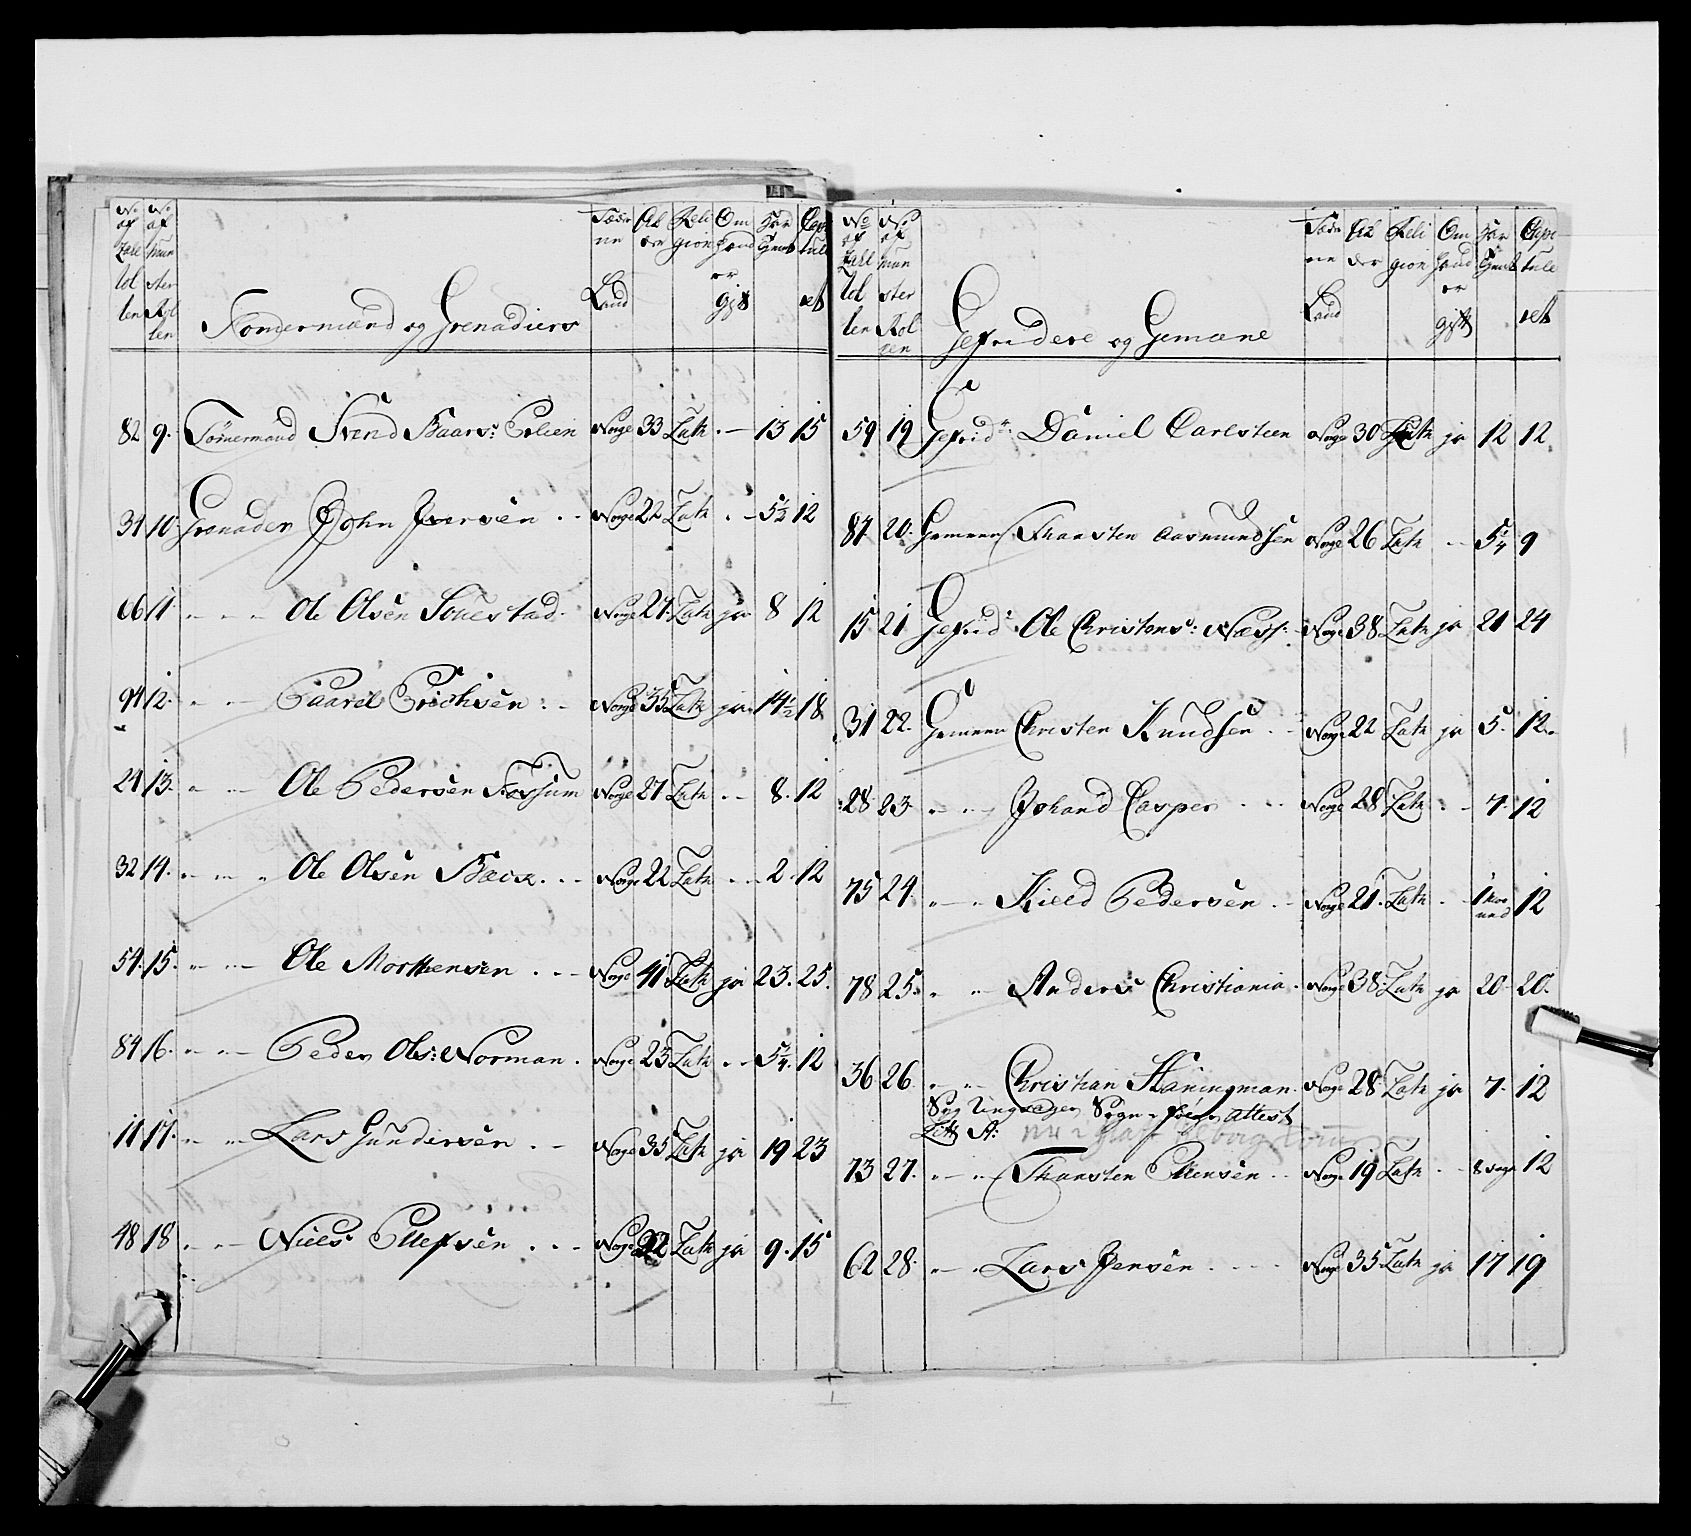 No af Zahl Rol len | No af Mun ster Rol len | Tömermand og Grenadiers | Fæde rne Land | Al der | Reli gion | Om hand er gift | Har tient | Capi tule ret
82 9. Tömermand Svend Baars: Eslien Norge 33 Luth . — 13 15
31 10. Grenader John Iversen . - Norge 22 Luth . — 5½ 12
66 11 " " " Ole Olsen Souestad Norge 27. Luth ja 8 12
94 12. " " Paarel Erichsen . - Norge 35 Luth ja 14½ 18
24 13. " " Ole Pedersen Fossum Norge 27 Luth . — 8. 12
32 14. " " " Ole Olsen Back . - Norge 22 Luth . — 2. 12
54. 15. " " Ole Morthensen . - - Norge 41 Luth ja 23. 25.
84 16. " " Peder Ols: Norman . Norge 23 Luth . — 5¾ 12
11 17. " " Lars Gundersen . - Norge 35 Luth ja 19 23
48 18 " " Niels Ellefsen . - - Norge 22 Luth ja 9. 15
No af Zahl Rol len | No af Mun ster Rol len | Gefridere og Gemæne | Fæde rne Land | Al der | Reli gion | Om hand er gift | Har tient | Capi tule ret
59 19 Gefridr Daniel Carlsteen Norge 30 Luth ja 12 12
87 20. Gemeen Thorsten Aasmundsen Norge 26 Luth - 5¼ 9
15 21 Gefridr Ole Christens: Næss: Norge 38 Luth ja 21 24
31 22. Gemeen Christen Knudsen . - Norge 22 Luth ja 5. 12.
28 23 " " Johand Casper . - - Norge 28 Luth . - 7. 12
75 24. " " Kield Pedersen . - Norge 21. Luth . - 1 12
78 25. " " Anders Christiania . Norge 38. Luth ja 20. 20.
36 26 " " Christian Haningman . Norge 28 Luth ja 7. 12
Syg Attest
Litt A:
73 27. " " Thorsten Ellensen . - Norge 19 Luth . - 8 12
62 28. " " Lars Jensen . - - - Norge 35 Luth ja 17 19